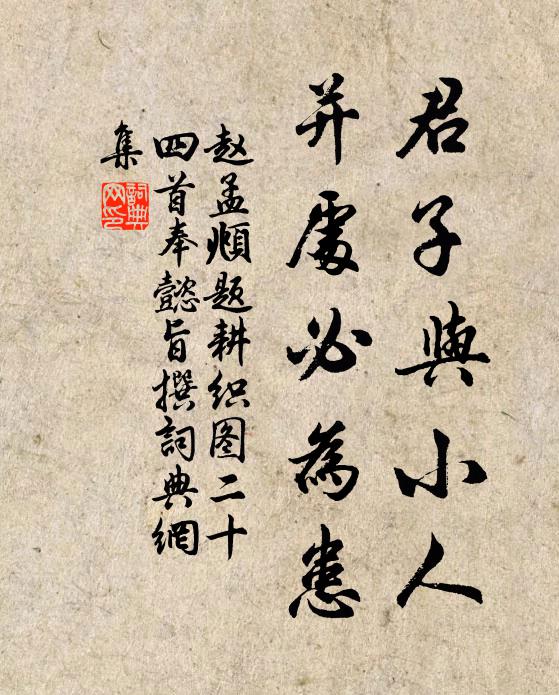 君子與小人
并處必為患
赵孟頫题耕织图二十
四首奉懿旨撰詞典網
集
詞典
网印